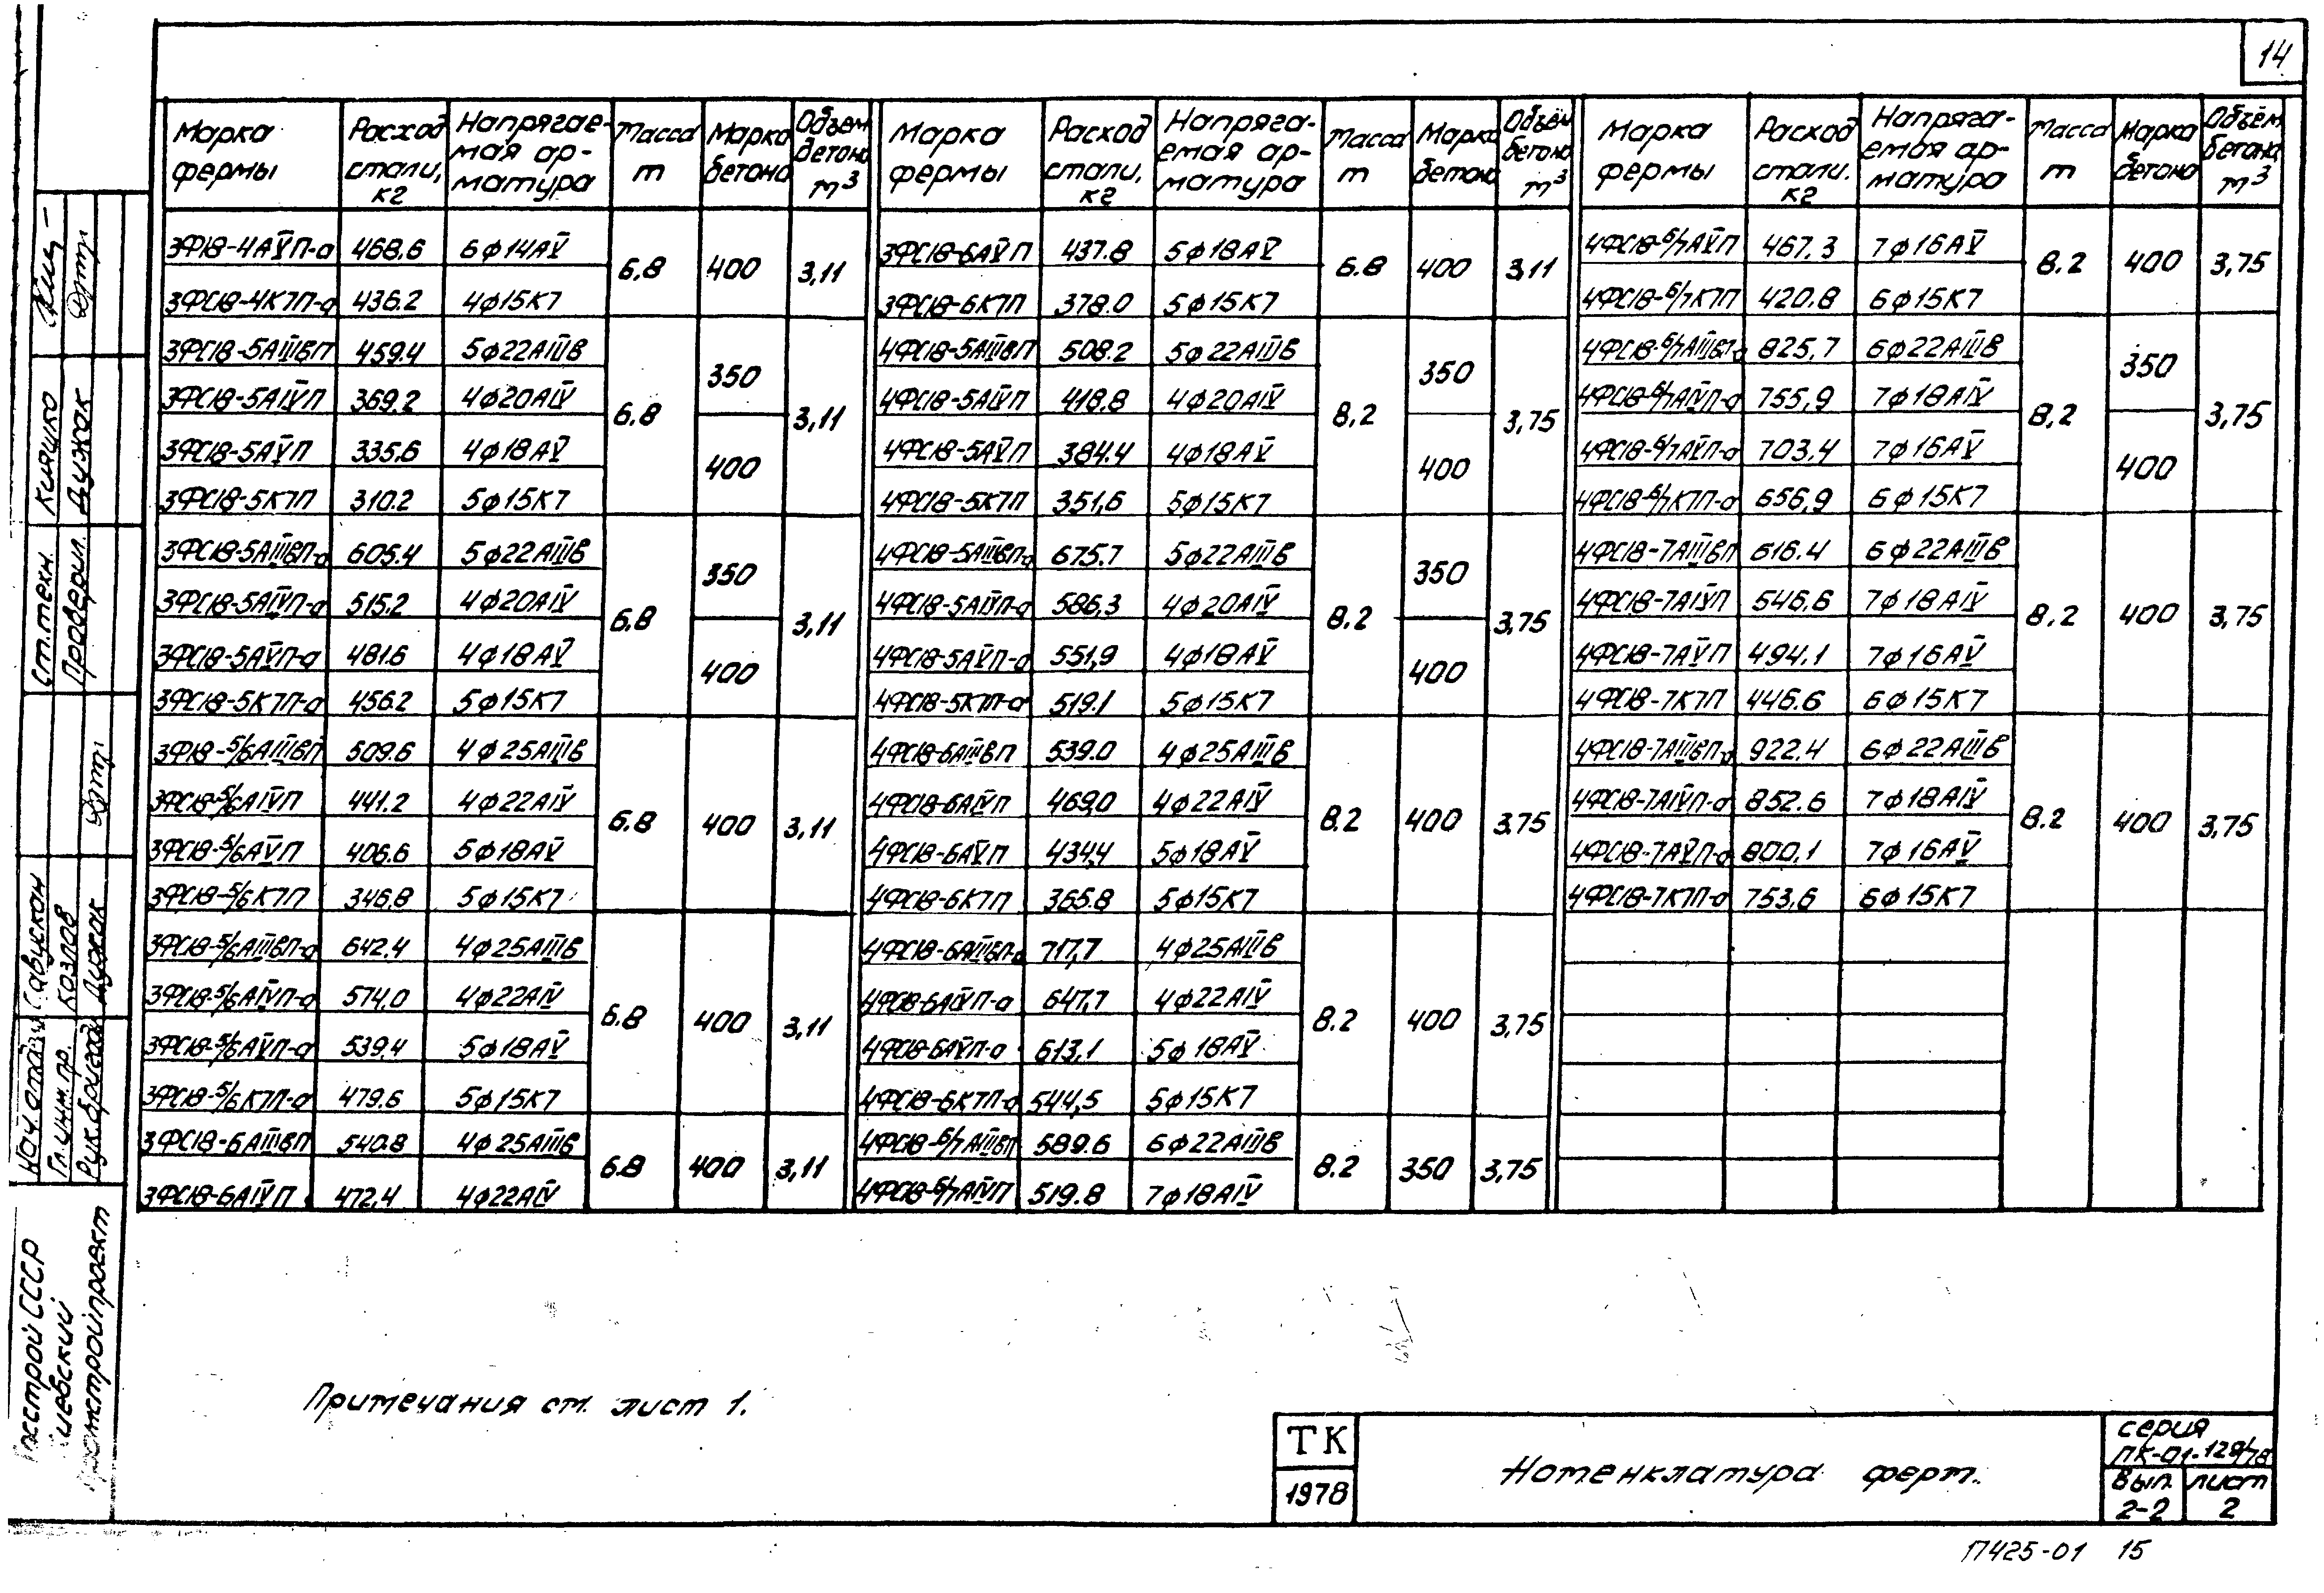 14
Марка фермы | Расход стали, кг | Напрягаемая арматура | Масса т | Марка бетона | Объем бетона м³
3ФС18-4АV̅П-а 468.6 6ϕ14АV 6.8 400 3,11
3ФС18-4К7П-а 436.2 4ϕ15К7
3ФС18-5АIIIвП 459.4 5ϕ22АIIIв 6.8 350 3,11
3ФС18-5АIVП 369.2 4ϕ20АIV
3ФС18-5АVП 335.6 4ϕ18АV 400
3ФС18-5К7П 310.2 5ϕ15К7
3ФС18-5АIIIвП-а 605.4 5ϕ22АIIIв 6.8 350 3,11
3ФС18-5АIVП-а 515.2 4ϕ20АIV
3ФС18-5АVП-а 481.6 4ϕ18АV 400
3ФС18-5К7П-а 456.2 5ϕ15К7
3ФС18-5/6АIIIвП 509.6 4ϕ25АIIIв 6.8 400 3,11
3ФС18-5/6АIVП 441.2 4ϕ22АIV
3ФС18-5/6АVП 406.6 5ϕ18АV
3ФС18-5/6К7П 346.8 5ϕ15К7
3ФС18-5/6АIIIвП-а 642.4 4ϕ25АIIIв 6.8 400 3,11
3ФС18-5/6АIVП-а 574.0 4ϕ22АIV
3ФС18-5/6АVП-а 539.4 5ϕ18АV
3ФС18-5/6К7П-а 479.6 5ϕ15К7
3ФС18-6АIIIвП 540.8 4ϕ25АIIIв 6.8 400 3,11
3ФС18-6АIVП 472.4 4ϕ22АIV
Марка фермы | Расход стали, кг | Напрягаемая арматура | Масса т | Марка бетона | Объём бетона м³
3ФС18-6АVП 437.8 5ϕ18АV 6.8 400 3,11
3ФС18-6К7П 378.0 5ϕ15К7
4ФС18-5АIIIвП 508.2 5ϕ22АIIIв 8,2 350 3,75
4ФС18-5АIVП 418.8 4ϕ20АIV
4ФС18-5АVП 384.4 4ϕ18АV 400
4ФС18-5К7П 351,6 5ϕ15К7
4ФС18-5АIIIвП-а 675.7 5ϕ22АIIIв 8.2 350 3,75
4ФС18-5АIVП-а 586,3 4ϕ20АIV
4ФС18-5АVП-а 551,9 4ϕ18АV 400
4ФС18-5К7П-а 519.1 5ϕ15К7
4ФС18-6АIIIвП 539.0 4ϕ25АIIIв 8.2 400 3.75
4ФС18-6АIVП 469.0 4ϕ22АIV
4ФС18-6АVП 434,4 5ϕ18АV
4ФС18-6К7П 365.8 5ϕ15К7
4ФС18-6АIIIвП-а 717,7 4ϕ25АIIIв 8.2 400 3,75
4ФС18-6АIVП-а 647,7 4ϕ22АIV
4ФС18-6АVП-а 613,1 5ϕ18АV
4ФС18-6К7П-а 544,5 5ϕ15К7
4ФС18-6/7АIIIвП 589.6 6ϕ22АIIIв 8.2 350 3,75
4ФС18-6/7АIVП 519.8 7ϕ18АIV
Марка фермы | Расход стали, кг | Напрягаемая арматура | Масса т | Марка бетона | Объём бетона м³
4ФС18-6/7АVП 467.3 7ϕ16АV 8.2 400 3,75
4ФС18-6/7К7П 420.8 6ϕ15К7
4ФС18-6/7АIIIвП-а 825,7 6ϕ22АIIIв 8,2 350 3,75
4ФС18-6/7АIVП-а 755,9 7ϕ18АIV
4ФС18-6/7АVП-а 703,4 7ϕ16АV 400
4ФС18-6/7К7П-а 656,9 6ϕ15К7
4ФС18-7АIIIвП 616.4 6ϕ22АIIIв 8,2 400 3,75
4ФС18-7АIVП 546.6 7ϕ18АIV
4ФС18-7АVП 494.1 7ϕ16АV
4ФС18-7К7П 446.6 6ϕ15К7
4ФС18-7АIIIвП-а 922.4 6ϕ22АIIIв 8.2 400 3,75
4ФС18-7АIVП-а 852.6 7ϕ18АIV
4ФС18-7АVП-а 800,1 7ϕ16АV
4ФС18-7К7П-а 753,6 6ϕ15К7
Примечания см. лист 1.
ТК
1978
Номенклатура ферм.
серия
ПК-01-129/78
Вып. 2-2
лист 2
П425-01 15
Ст.техн. Кияшко
Проверил. Дужак
Нач.отдела Савускан
Гл.инж.пр. Козлов
Рук.бригады Дужак
Госстрой СССР
Киевский
Промстройпроект